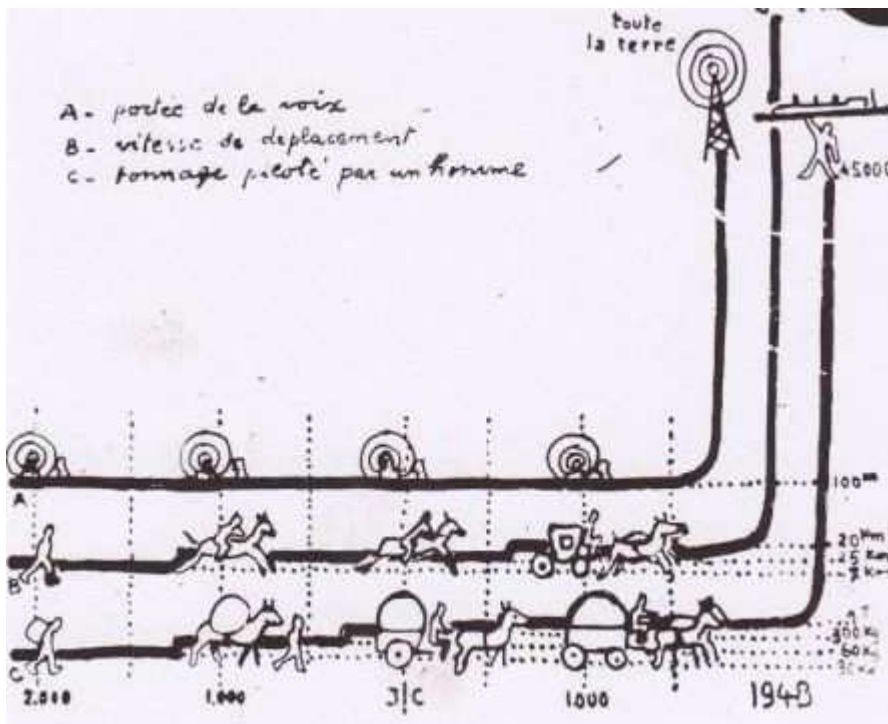 toute
la terre
A - portée de la voix
B - vitesse de déplacement
C - tonnage piloté par un homme
45.000
A
100 m
B
20 Km
5 Km
C
60 K
2.000 1.000 J|C 1.000 1948